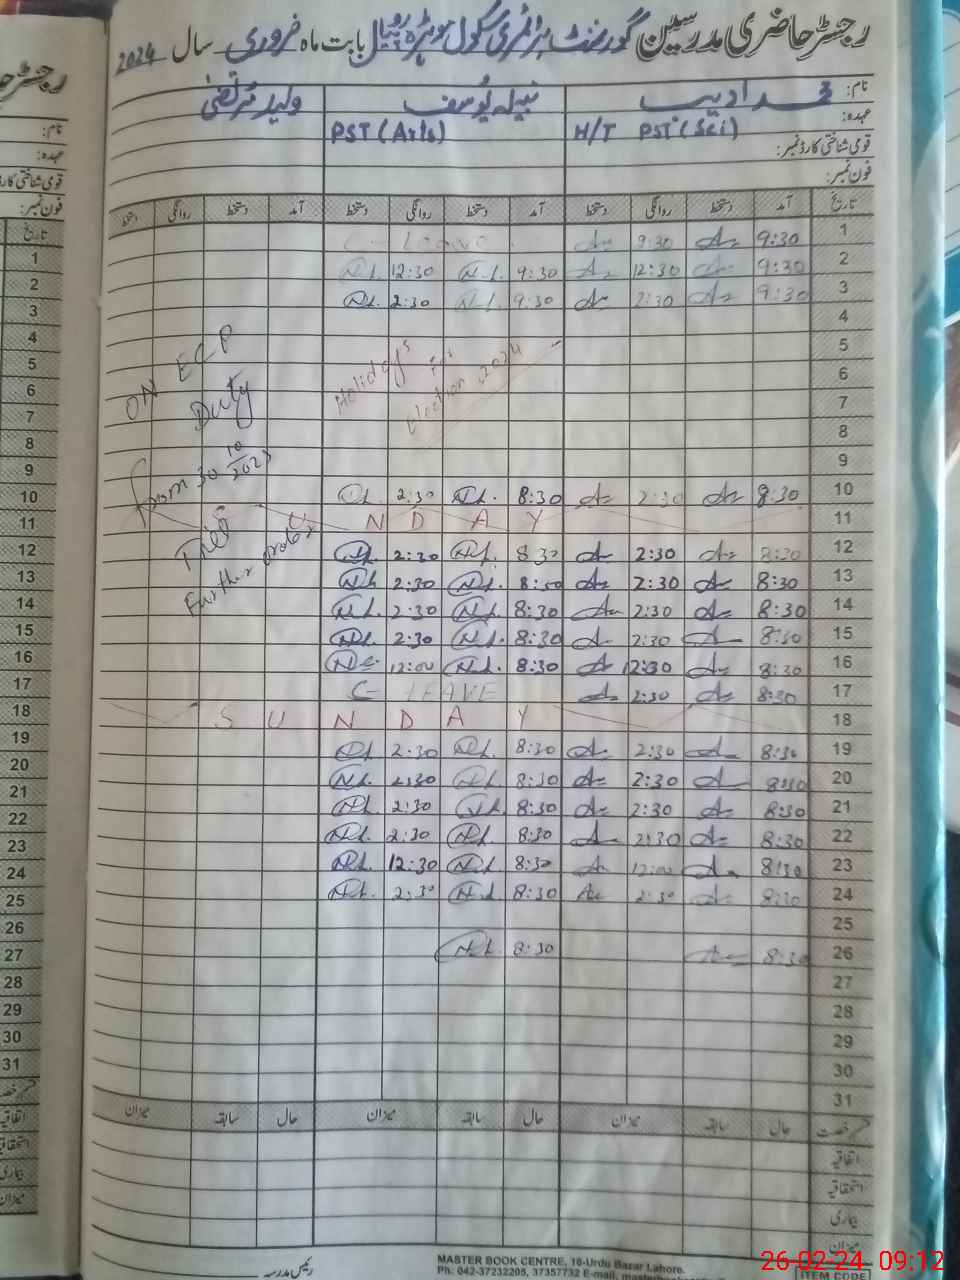 رجسٹر حاضری مدرسین گورنمنٹ پرائمری سکول بابت ماہ فروری سال 2024
نام: محمد ادیب نبیلہ یوسف ولید مرتضیٰ
عہدہ: H/T PST (Sci) PST (Arts)
قومی شناختی کارڈ نمبر:
فون نمبر:
تاریخ آمد دستخط روانگی دستخط آمد دستخط روانگی دستخط آمد دستخط روانگی دستخط
1 9:30 9:30 C- Leave
2 9:30 12:30 9:30 12:30
3 9:30 2:30 9:30 2:30
4
5
6
7
8
9
Holidays for Election, 2024
ON ECP Duty
from 30 10/2023
Till
Further order
10 8:30 2:30 8:30 2:30
11 S U N D A Y
12 8:30 2:30 8:30 2:30
13 8:30 2:30 8:30 2:30
14 8:30 2:30 8:30 2:30
15 8:30 2:30 8:30 2:30
16 8:30 12:30 8:30 12:00
17 8:30 2:30 C- LEAVE
18 S U N D A Y
19 8:30 2:30 8:30 2:30
20 8:30 2:30 8:30 2:30
21 8:30 2:30 8:30 2:30
22 8:30 2:30 8:30 2:30
23 8:30 12:00 8:30 12:30
24 8:30 2:30 8:30 2:30
25
26 8:30 8:30
27
28
29
30
31
حال سابقہ میزان حال سابقہ میزان حال سابقہ میزان
اتفاقیہ
استحقاقیہ
بیماری
میزان
رئیس مدرسہ
MASTER BOOK CENTRE, 16-Urdu Bazar Lahore.
Ph: 042-37232205, 37357732 E-mail:
ITEM CODE
26-02-24 09:12